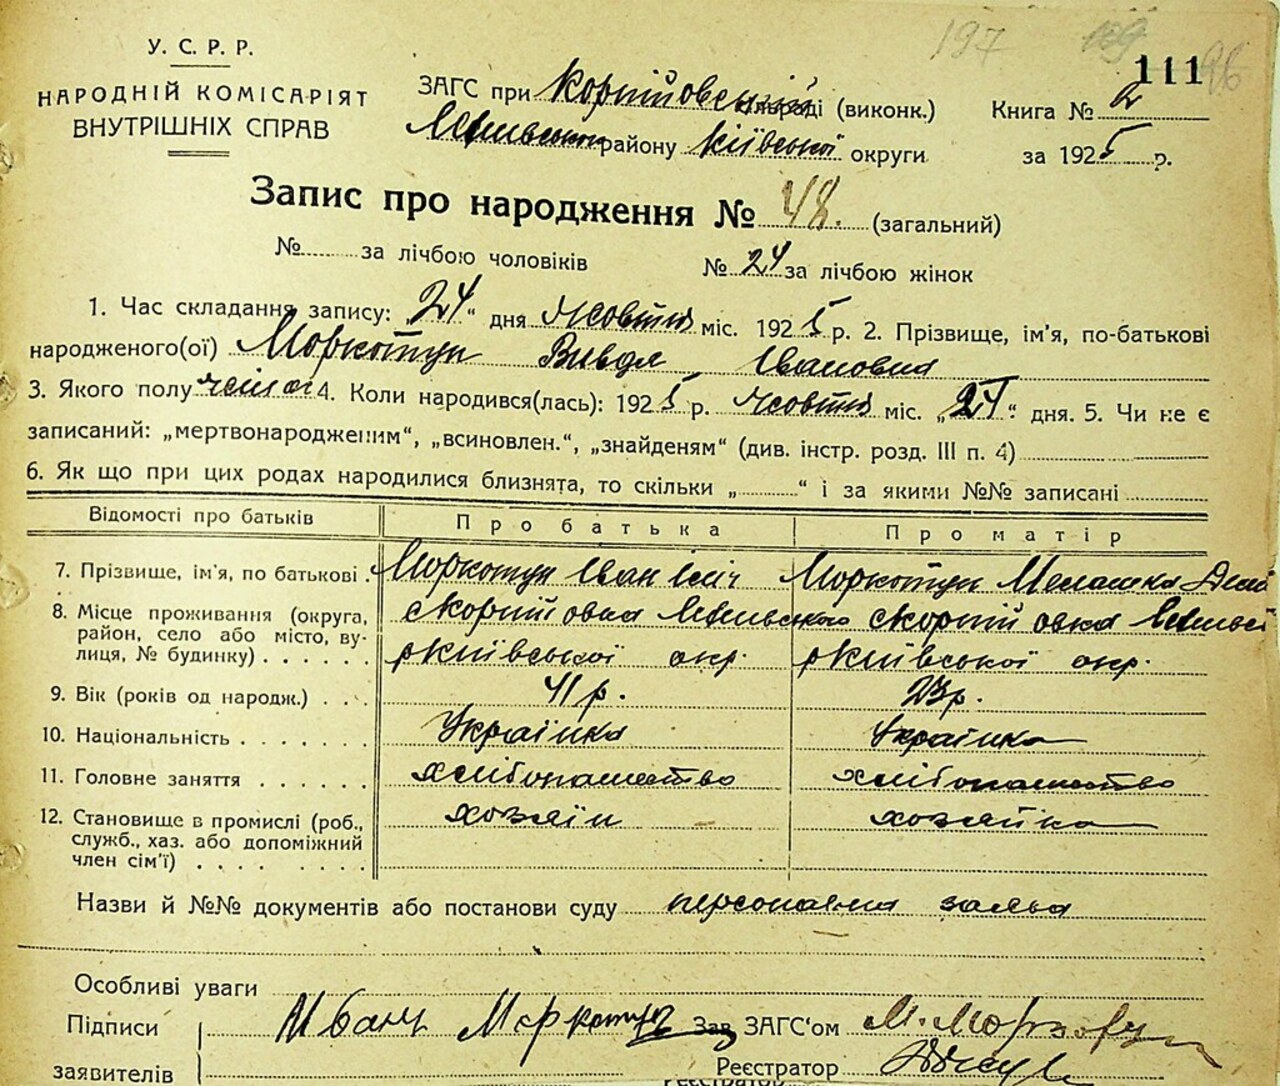 197 159 96
У. С. Р. Р.
НАРОДНІЙ КОМІСАРІЯТ
ВНУТРІШНІХ СПРАВ
ЗАГС при (виконк.)
району Київської округи
111
Книга № 2
за 1925 р.
Запис про народження № 48. (загальний)
№ за лічбою чоловіків № 24 за лічбою жінок
1. Час складання запису: 24 " дня Жовтня міс. 1925 р. 2. Прізвище, ім'я, по-батькові
народженого(ої) Моркотун Вивдя Івановна
3. Якого полу 4. Коли народився(лась): 1925 р. Жовтня міс. „ “ дня. 5. Чи не є
записаний: „мертвонародженим“, „всиновлен.“, „знайденям“ (див. інстр. розд. III п. 4)
6. Як що при цих родах народилися близнята, то скільки „ “ і за якими №№ записані
Відомості про батьків Про батька Про матір
7. Прізвище, ім'я, по батькові Моркотун Іван Іліч Моркотун Мелашка
8. Місце проживання (округа,
район, село або місто, ву-
лиця, № будинку)
рКиївської окр. рКиївської окр.
9. Вік (років од народж.) 41 р. 23 р.
10. Національність Українка Українка
11. Головне заняття хлібопашество хлібопашество
12. Становище в промислі (роб.,
служб., хаз. або допоміжний
член сім'ї)
хозяїн хозяйка
Назви й №№ документів або постанови суду персональна заява
Особливі уваги
Підписи
заявителів
Иван Моркотун
Зав ЗАГС'ом
Реєстратор